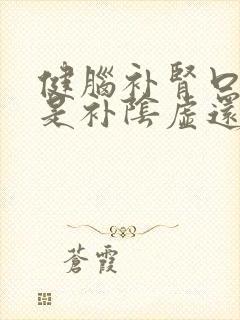 健腦补腎口
是补陰虛還
蒼霞